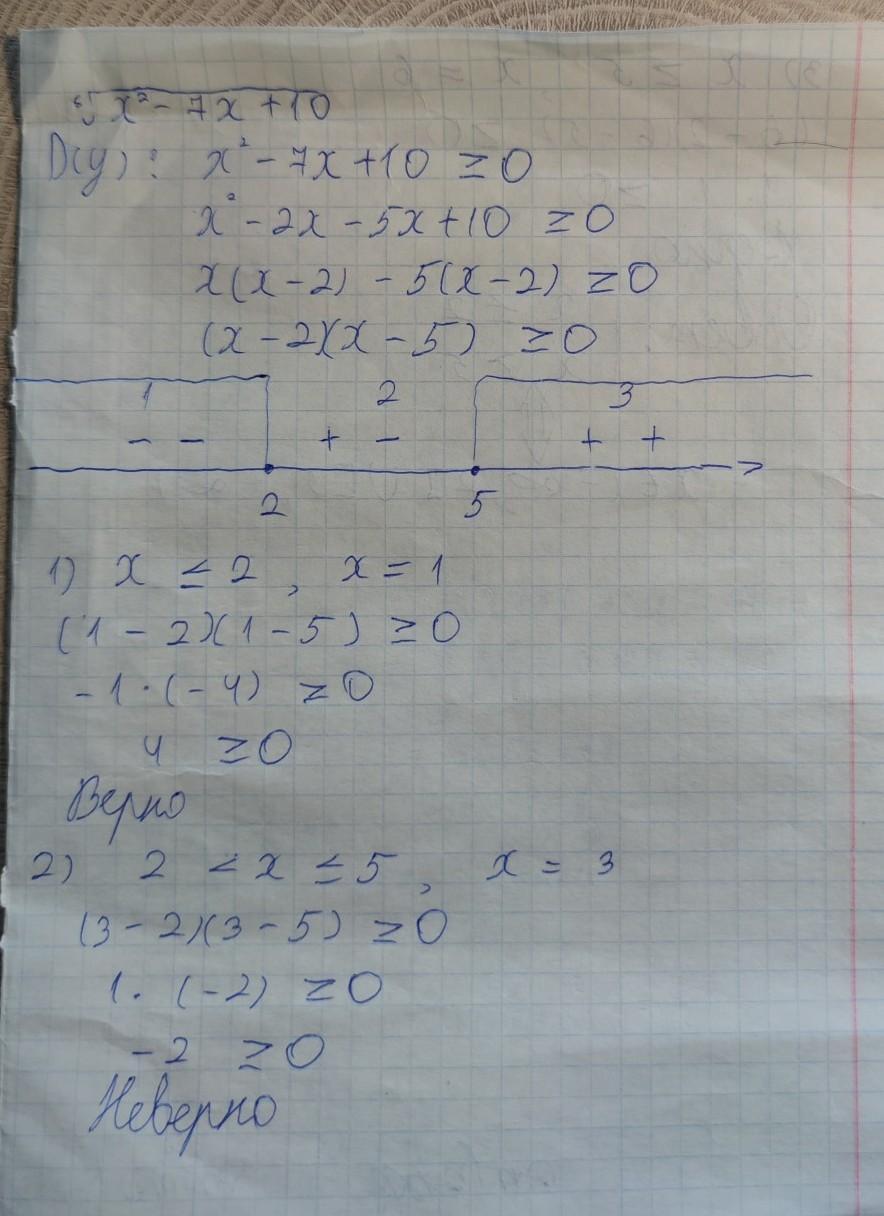 ⁶√x² - 7x + 10
D(y): x² - 7x + 10 ≥ 0
x² - 2x - 5x + 10 ≥ 0
x(x - 2) - 5(x - 2) ≥ 0
(x - 2)(x - 5) ≥ 0
1 2 3
- - + - + +
2 5
1) x ≤ 2, x = 1
(1 - 2)(1 - 5) ≥ 0
-1 · (-4) ≥ 0
4 ≥ 0
Верно
2) 2 < x ≤ 5, x = 3
(3 - 2)(3 - 5) ≥ 0
1 · (-2) ≥ 0
-2 ≥ 0
Неверно